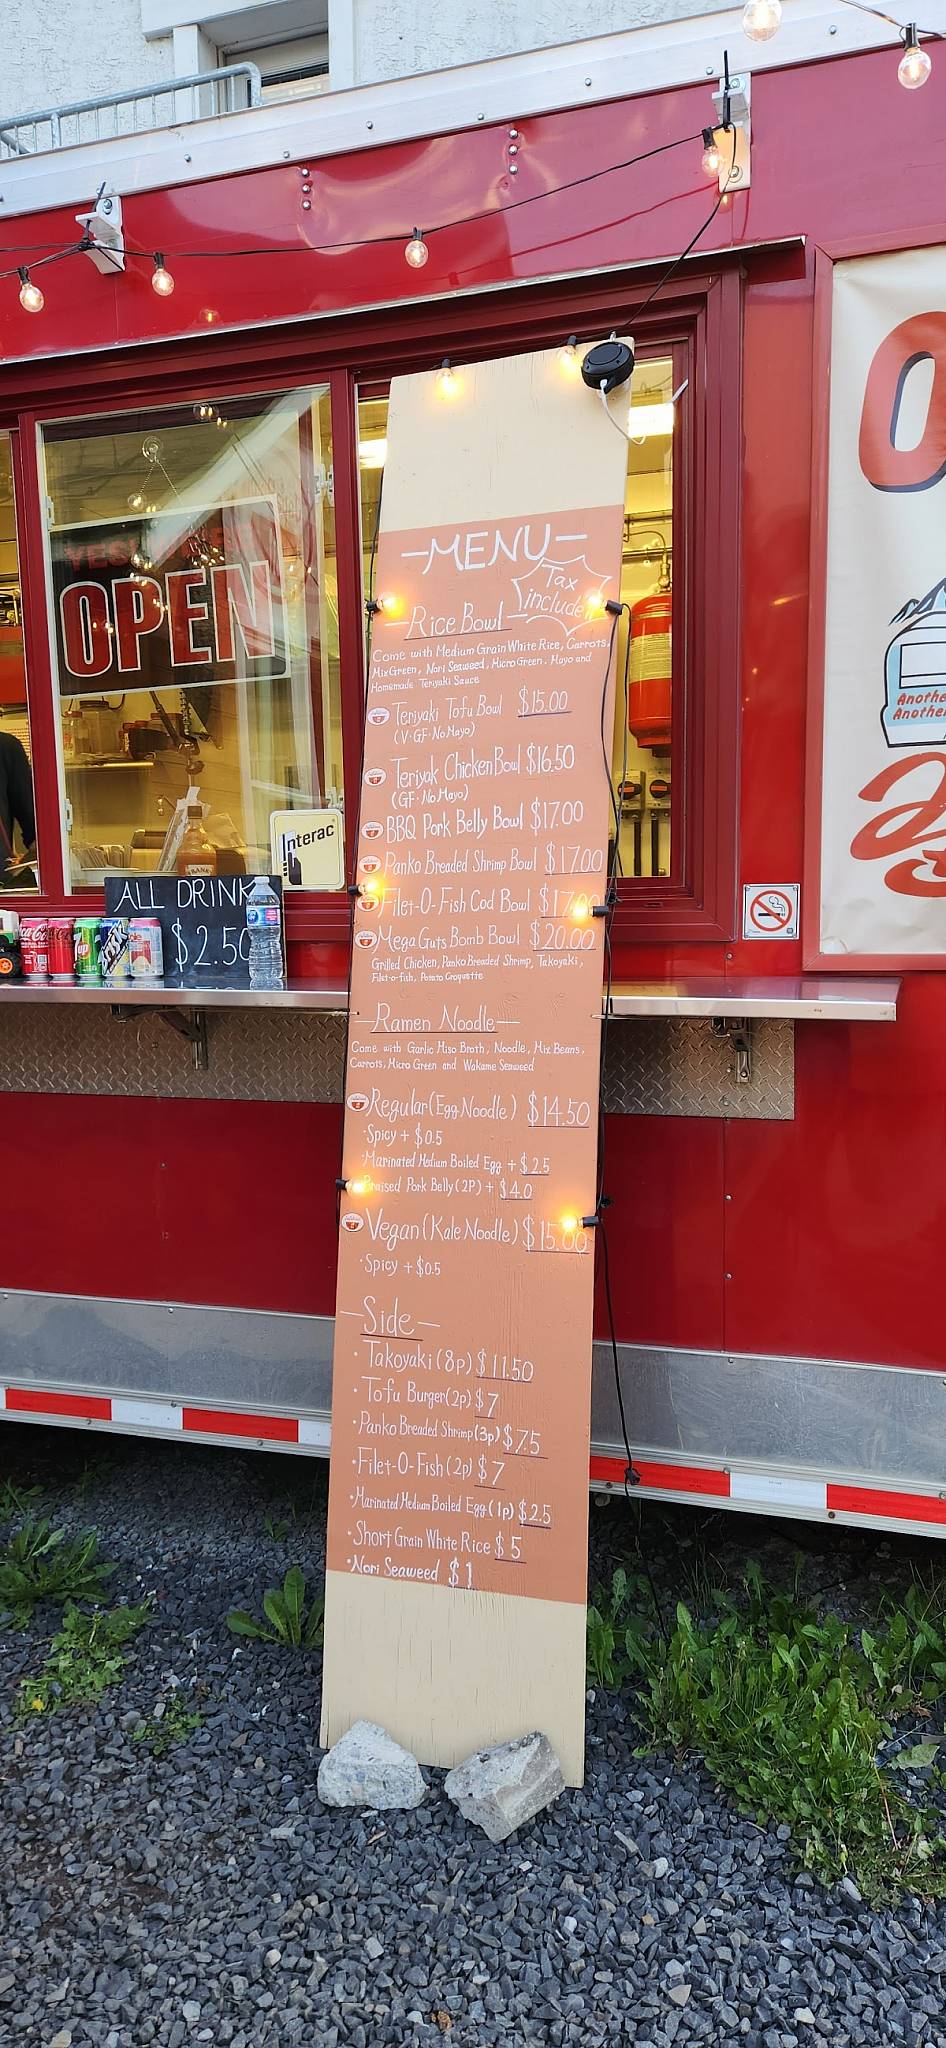 OPEN
Interac
ALL DRINK
$2.50
Coca-Cola
up
Another
Another
-MENU-
Tax
included
-Rice Bowl-
Come with Medium Grain White Rice, Carrots,
Mix Green, Nori Seaweed, Micro Green. Mayo and
Homemade Teriyaki Sauce
Teriyaki Tofu Bowl $15.00
(V・GF・No Mayo)
Teriyak Chicken Bowl $16.50
(GF・No Mayo)
BBQ Pork Belly Bowl $17.00
Panko Breaded Shrimp Bowl $17.00
Filet-O-Fish Cod Bowl $17.00
Mega Guts Bomb Bowl $20.00
Grilled Chicken, Panko Breaded Shrimp, Takoyaki,
Filet-o-fish, Potato Croquette
-Ramen Noodle-
Come with Garlic Miso Broth, Noodle, Mix Beans,
Carrots, Micro Green and Wakame Seaweed
Regular (Egg Noodle) $14.50
・Spicy + $0.5
・Marinated Medium Boiled Egg + $2.5
Braised Pork Belly (2P) + $4.0
Vegan (Kale Noodle) $15.00
・Spicy + $0.5
-Side-
・Takoyaki (8p) $11.50
・Tofu Burger (2p) $7
・Panko Breaded Shrimp (3p) $7.5
・Filet-O-Fish (2p) $7
・Marinated Medium Boiled Egg (1p) $2.5
・Short Grain White Rice $5
・Nori Seaweed $1